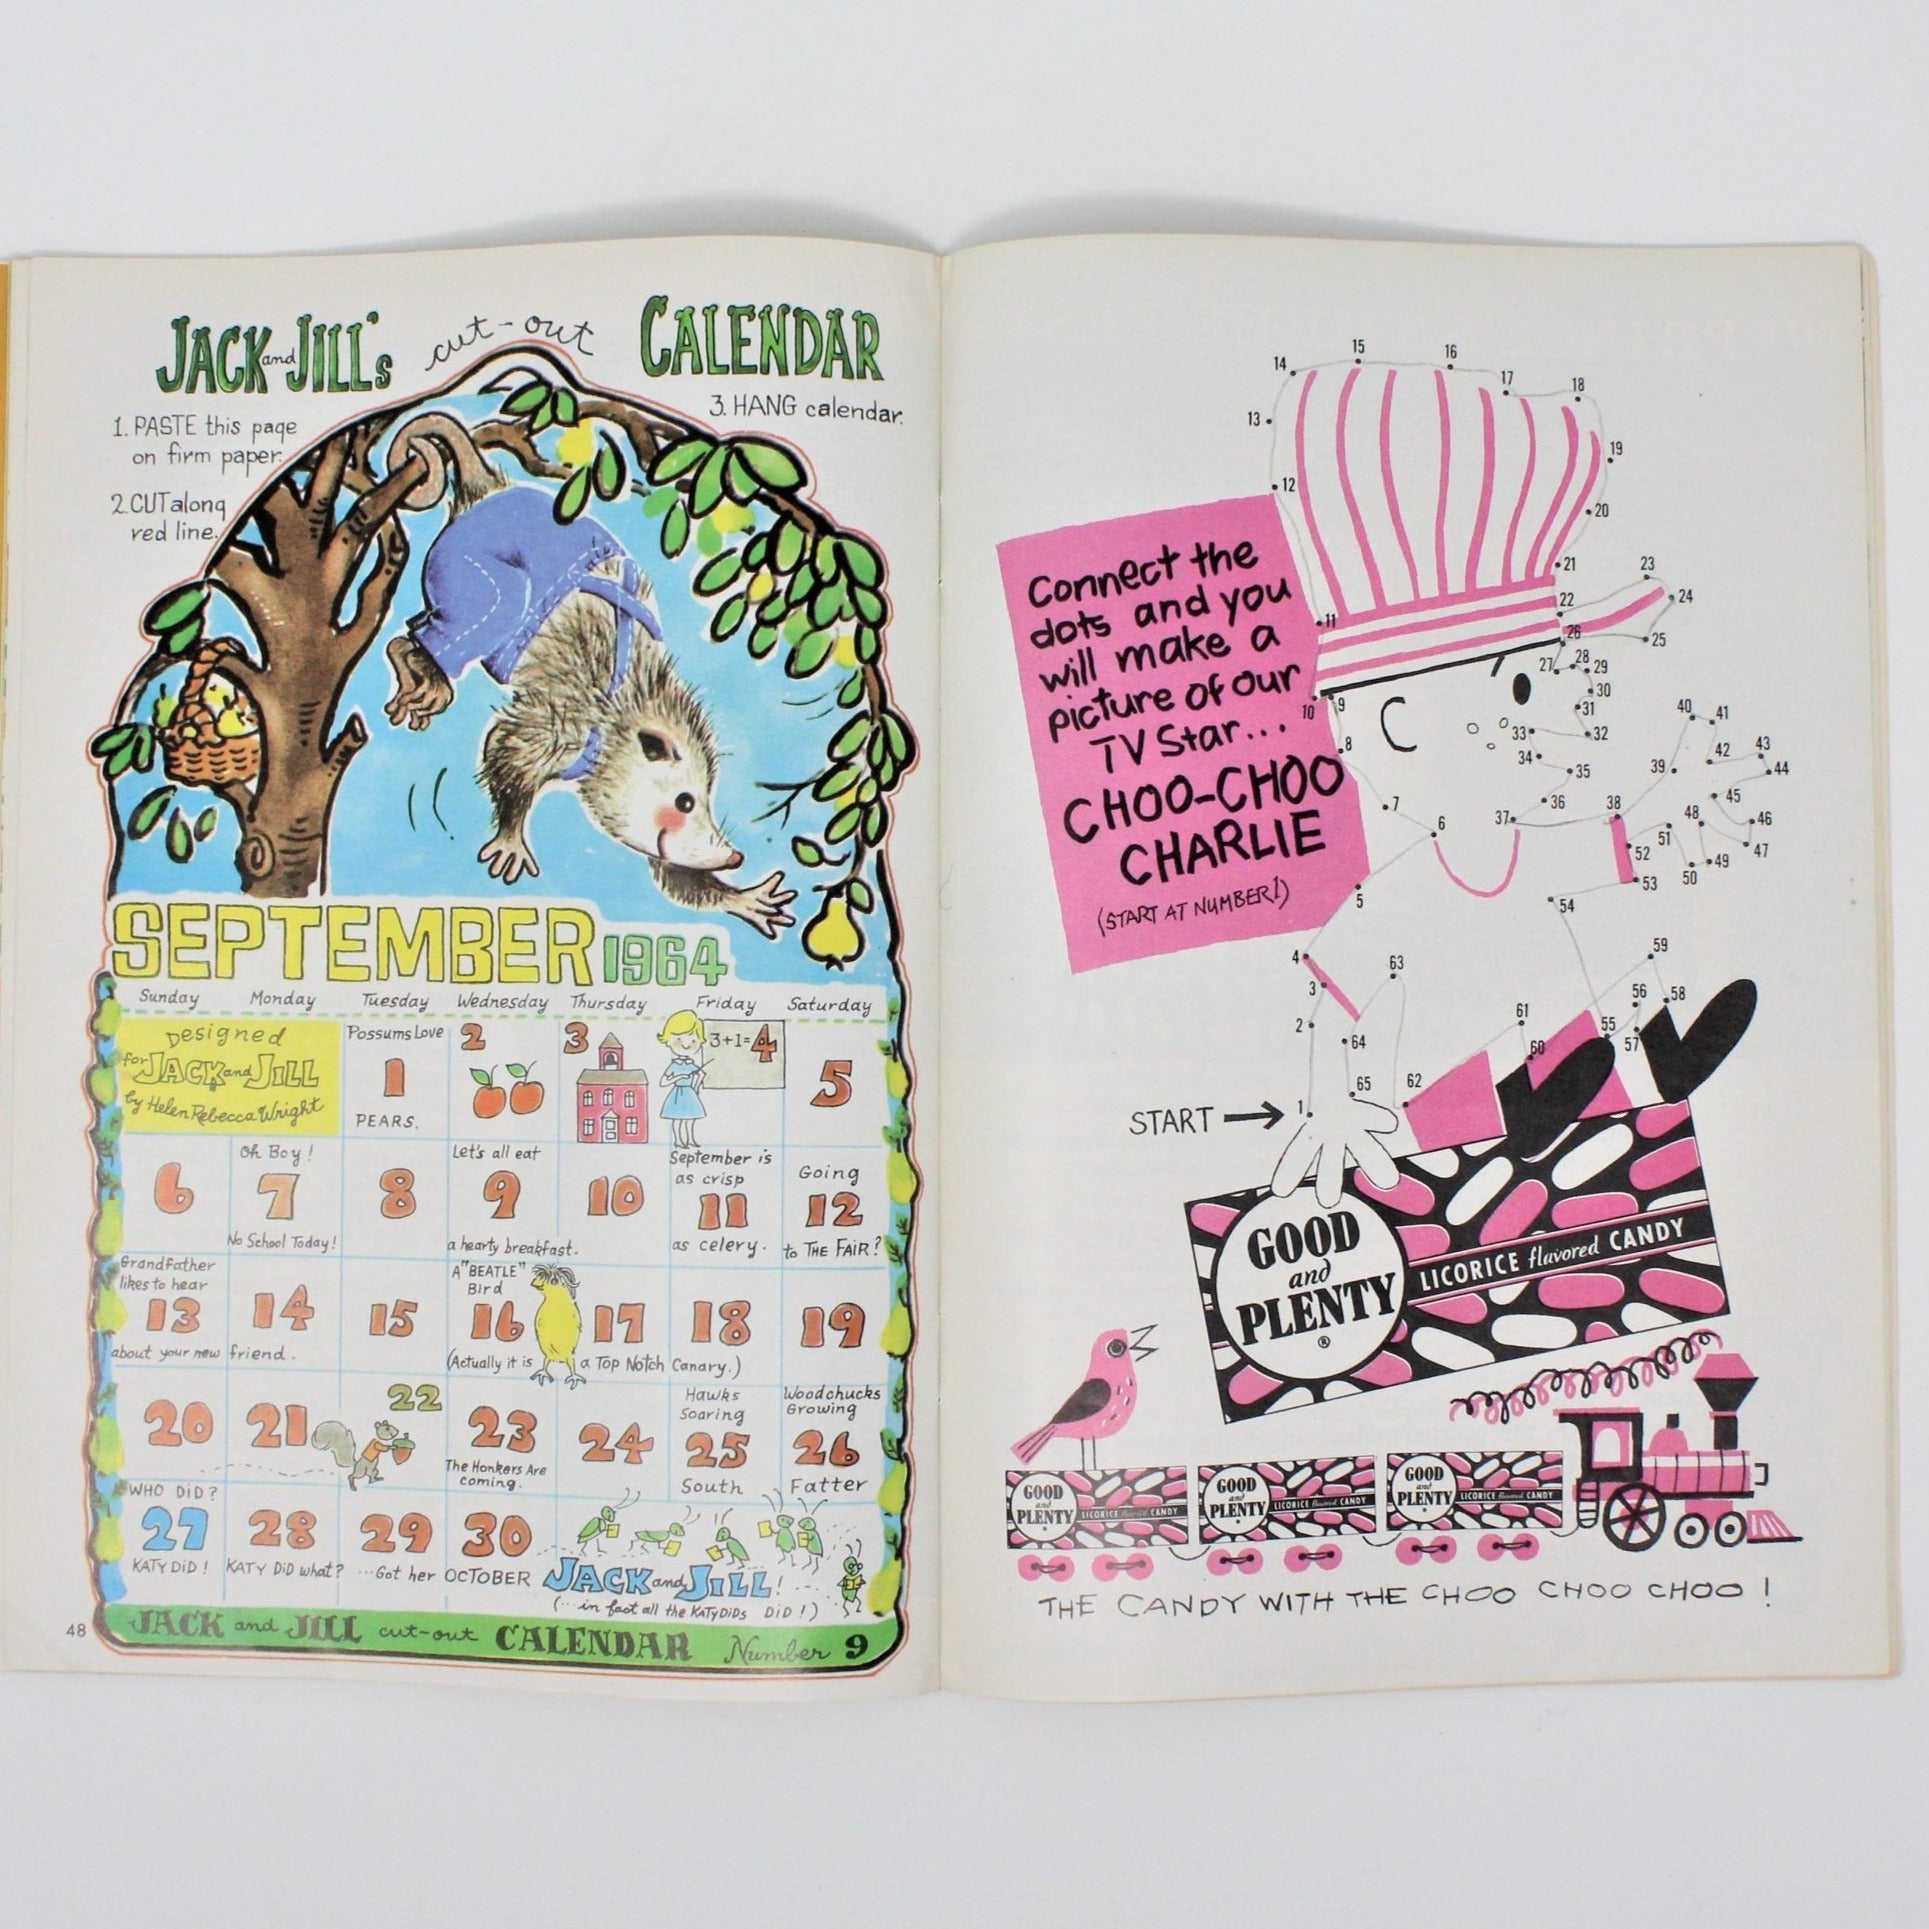 JACK and JILL's cut-out CALENDAR
1. PASTE this page
on firm paper.
2. CUT along
red line.
3. HANG calendar.
SEPTEMBER 1964
Sunday Monday Tuesday Wednesday Thursday Friday Saturday
Designed
for JACK and JILL
by Helen Rebecca Wright
Possums Love
1
PEARS.
2
3
3+1=4
5
6
Oh Boy!
7
No School Today!
8
Let's all eat
9
a hearty breakfast.
10
September is
as crisp
11
as celery.
Going
12
to THE FAIR?
Grandfather
likes to hear
13 14
about your new friend.
15
A "BEATLE"
Bird
16 17 18
(Actually it is a Top Notch Canary.)
19
20
21
22
23
The Honkers Are
coming.
24
Hawks
Soaring
25
South
Woodchucks
Growing
26
Fatter
WHO DID?
27
KATY DID!
28
KATY DID what?
29 30
...Got her OCTOBER JACK and JILL!
(...in fact all the KATYDIDs DID!)
48
JACK and JILL cut-out CALENDAR Number 9
Connect the
dots and you
will make a
picture of our
TV Star...
CHOO-CHOO
CHARLIE
(START AT NUMBER 1)
START
1
2
3
4
5
6
7
8
9
10
11
12
13
14
15
16
17
18
19
20
21
22
23
24
25
26
27
28
29
30
31
32
33
34
35
36
37
38
39
40
41
42
43
44
45
46
47
48
49
50
51
52
53
54
55
56
57
58
59
60
61
62
63
64
65
GOOD
and
PLENTY
®
LICORICE flavored CANDY
GOOD
and
PLENTY
LICORICE flavored CANDY
GOOD
and
PLENTY
LICORICE flavored CANDY
GOOD
and
PLENTY
LICORICE flavored CANDY
THE CANDY WITH THE CHOO CHOO CHOO!